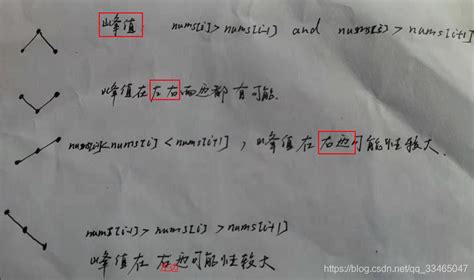 峰值: nums[i]>nums[i-1] and nums[i]>nums[i+1]
峰值在左右两边都有可能.
nums[i]<nums[i]<nums[i+1], 峰值在右边可能性较大.
nums[i-1]>nums[i]>nums[i+1]
峰值在 边可能性较大
https://blog.csdn.net/qq_33465047